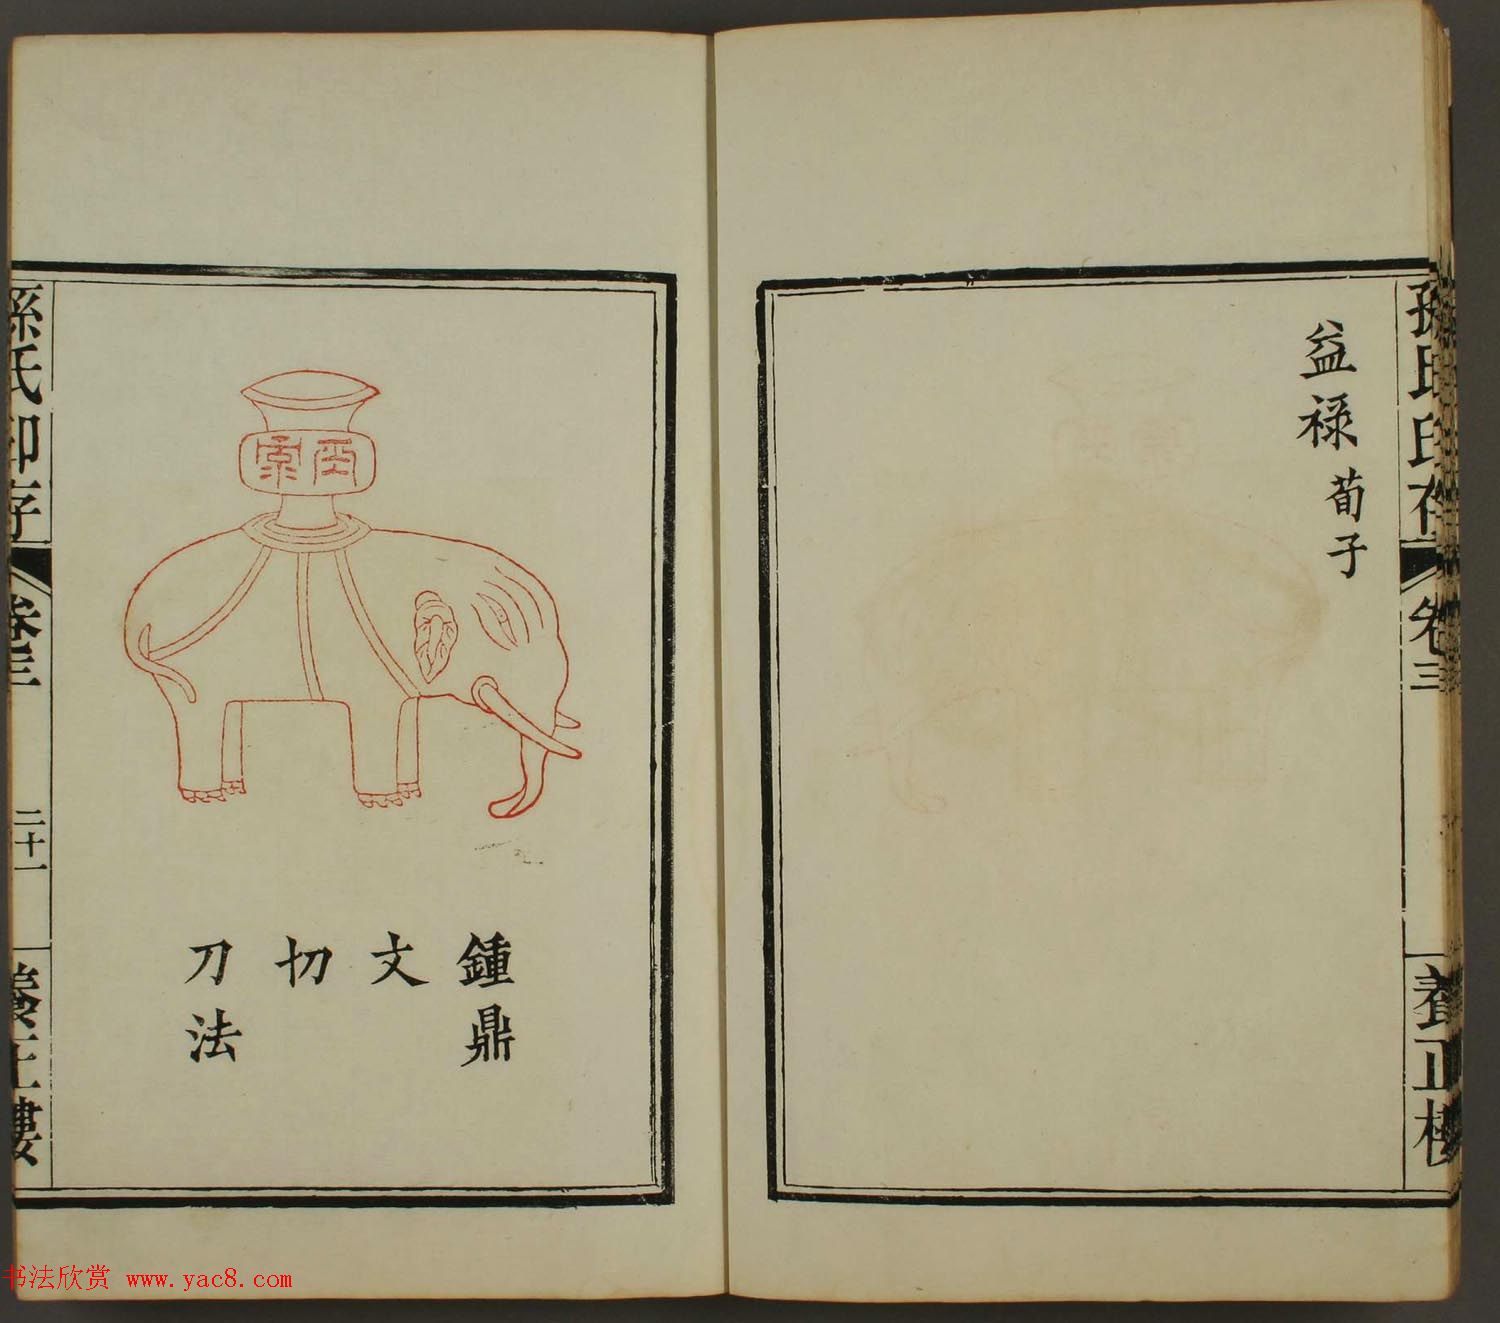 孫氏印存
卷三
養正樓
益祿 荀子
鍾鼎
文
切
刀法
孫氏印存
卷三
二十一
養正樓
书法欣赏 www.yac8.com